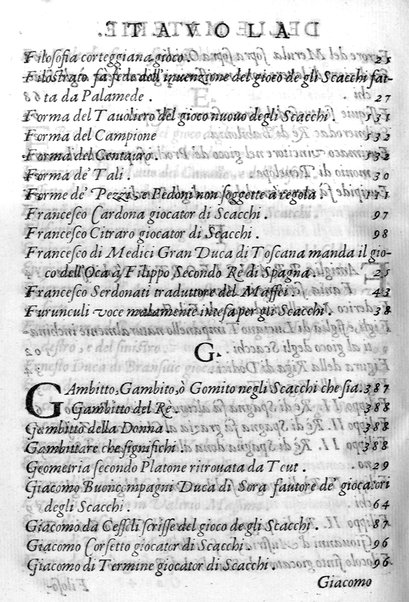 TAVOLA
Filosofia corteggiana gioco. 25
Filostrato fa fede dell'inuenzione del gioco de gli Scacchi fat-
ta da Palamede. 27
Forma del Tauoliero del gioco nuouo degli Scacchi. 331
Forma del Campione 332
Forma del Centauro. 332
Forma de' Tali. 30
Forme de' Pezzi, e Pedoni non soggette a regola 51
Francesco Cardona giocator di Scacchi. 97
Francesco Citraro giocator di Scacchi. 98
Francesco di Medici Gran Duca di Toscana manda il gio-
co dell'Oca à Filippo Secondo Rè di Spagna. 25
Francesco Serdonati traduttore del Maffei. 43
Furunculi voce malamente intesa per gli Scacchi. 38
G.
GAmbitto, Gambito, ò Gomito negli Scacchi che sia. 387
Gambitto del Rè. 388
Gambitto della Donna 388
Gambittare che significhi. 388
Geometria secondo Platone ritrouata da Teut. 29
Giacomo Buoncompagni Duca di Sora fautore de' giocatori
degli Scacchi. 64
Giacomo da Cessoli scrisse del gioco de gli Scacchi. 87
Giacomo Corsetto giocator di Scacchi. 96
Giacomo di Termine giocator di Scacchi. 96
Giacomo